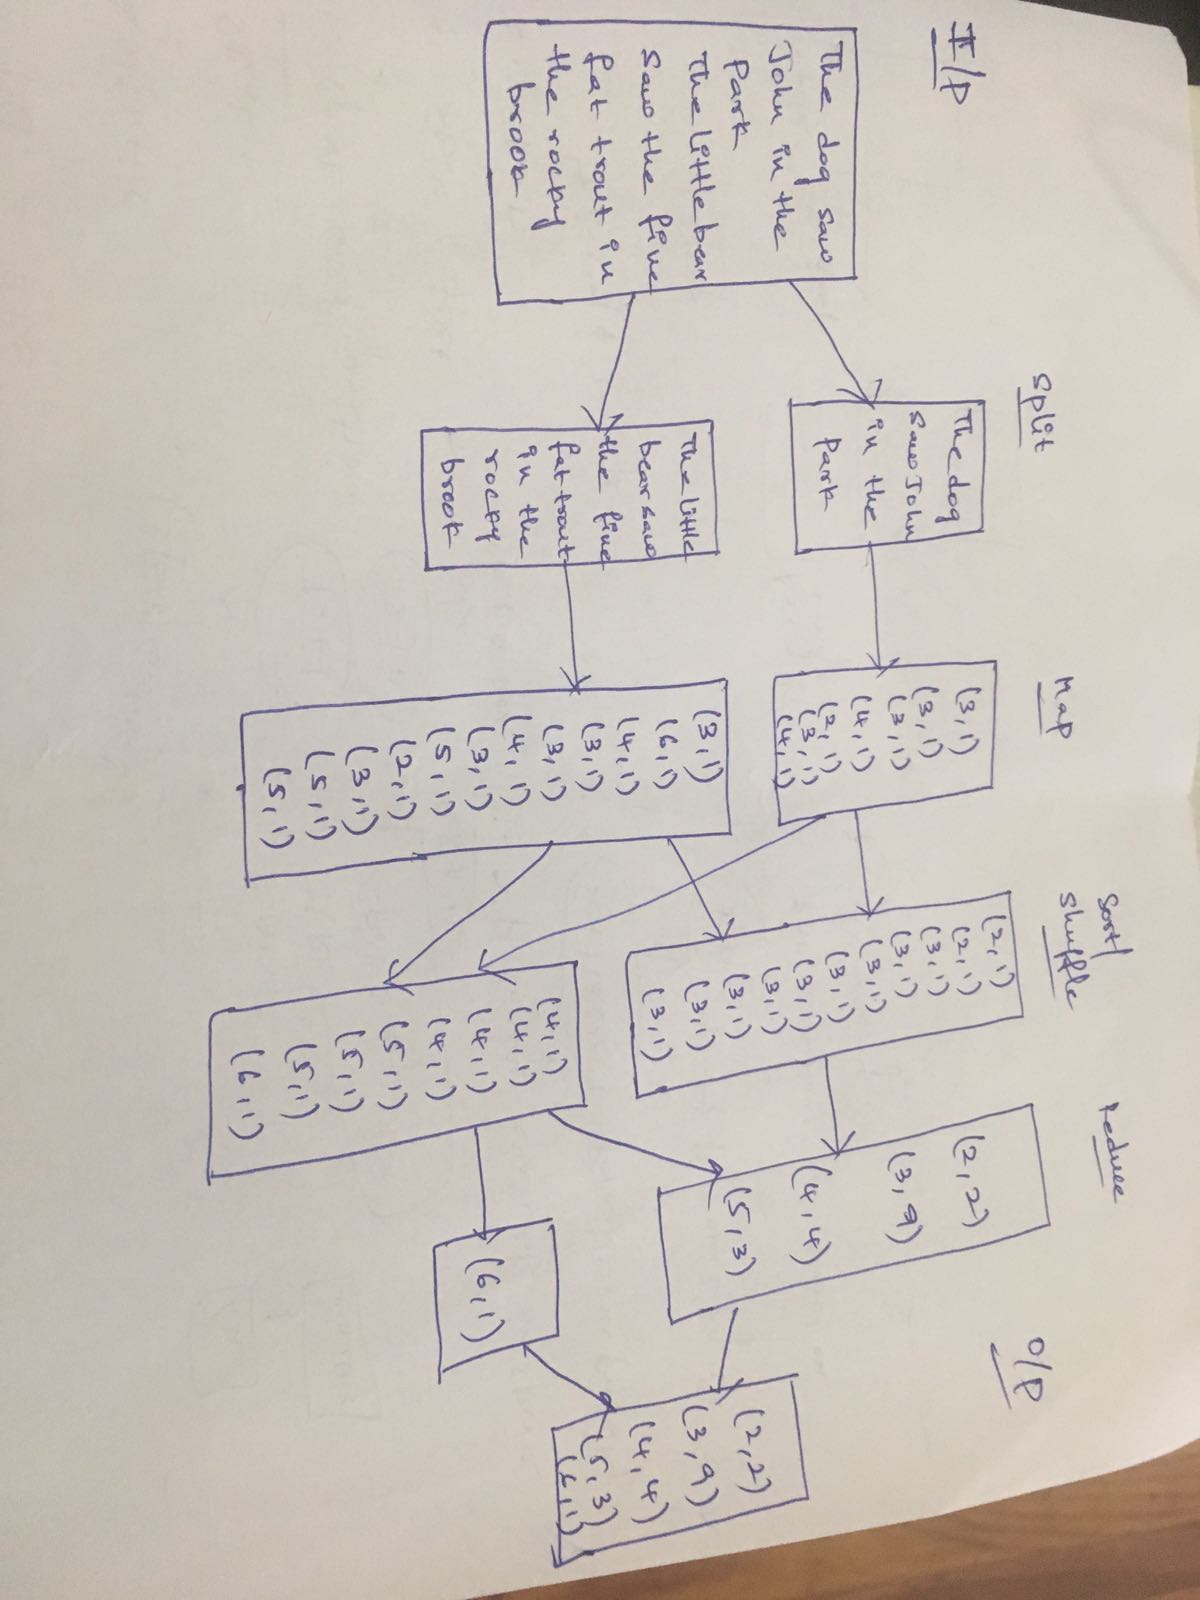 I/P
The dog saw
John in the
Park
The little bear
saw the fine
fat trout in
the rocky
brook
Split
The dog
saw John
in the
Park
The little
bear saw
the fine
fat trout
in the
rocky
brook
Map
(3,1)
(3,1)
(3,1)
(4,1)
(2,1)
(3,1)
(4,1)
(3,1)
(6,1)
(4,1)
(3,1)
(3,1)
(4,1)
(3,1)
(5,1)
(2,1)
(3,1)
(5,1)
(5,1)
Sort/
Shuffle
(2,1)
(2,1)
(3,1)
(3,1)
(3,1)
(3,1)
(3,1)
(3,1)
(3,1)
(3,1)
(3,1)
(4,1)
(4,1)
(4,1)
(4,1)
(5,1)
(5,1)
(5,1)
(6,1)
Reduce
(2,2)
(3,9)
(4,4)
(5,3)
(6,1)
O/P
(2,2)
(3,9)
(4,4)
(5,3)
(6,1)